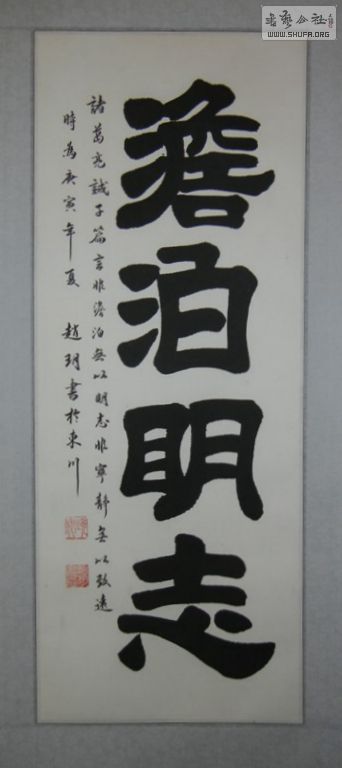 澹泊明志
諸葛亮誡子篇言非澹泊無以明志非寧靜無以致遠
時為庚寅年夏 趙玥書於東川
書藝公社
WWW.SHUFA.ORG